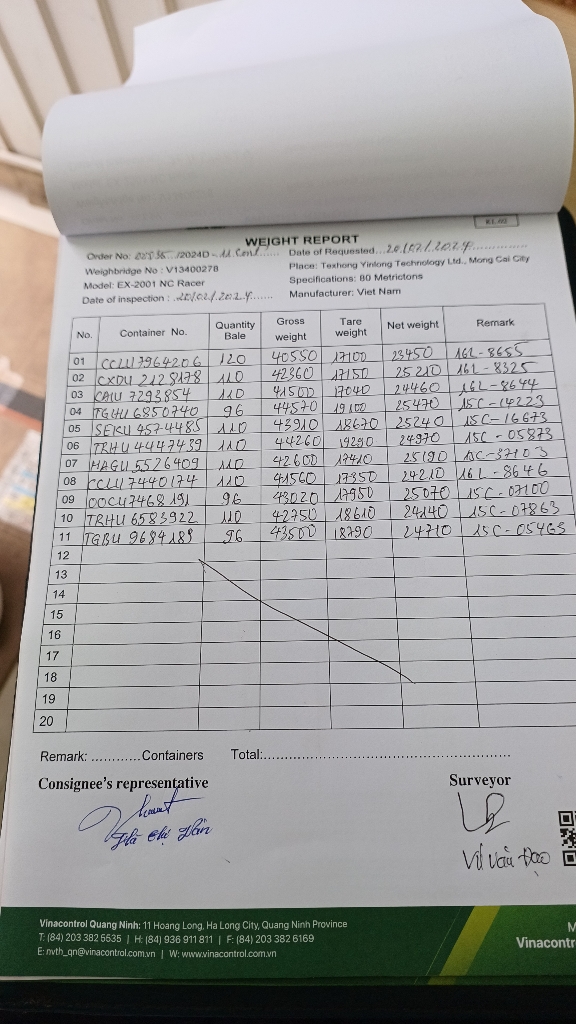 KL-02
WEIGHT REPORT
Order No: /2024D - 11 Cont Date of Requested...20/02/2024
Weighbridge No : V13400278 Place: Texhong Yinlong Technology Ltd., Mong Cai City
Model: EX-2001 NC Racer Specifications: 80 Metrictons
Date of inspection : 20/02/2024 Manufacturer: Viet Nam
No. Container No. Quantity Bale Gross weight Tare weight Net weight Remark
01 CCLU7964206 120 40550 17100 23450 16L-8655
02 CXDU 2128178 110 42360 17150 25210 16L-8325
03 CAIU 7293854 110 41500 17040 24460 16L-8644
04 TGHU 6850740 96 44570 19100 25470 15C-14223
05 SEKU 4574485 110 43910 18670 25240 15C-16673
06 TRHU 4447439 110 44260 19290 24970 15C-05873
07 MAGU 5526409 110 42600 17410 25190 15C-37103
08 CCLU 7440174 110 41560 17350 24210 16L-8646
09 OOCU7468191 96 43020 17950 25070 15C-07100
10 TRHU 6583922 110 42750 18610 24140 15C-07863
11 TGBU 9684189 96 43500 18790 24710 15C-05463
12
13
14
15
16
17
18
19
20
Remark: ............Containers Total:
Consignee's representative Surveyor
Vũ Văn Đạo
Vinacontrol Quang Ninh: 11 Hoang Long, Ha Long City, Quang Ninh Province
T: (84) 203 382 5535 | H: (84) 936 911 811 | F: (84) 203 382 6169
E: nvth_qn@vinacontrol.com.vn | W: www.vinacontrol.com.vn